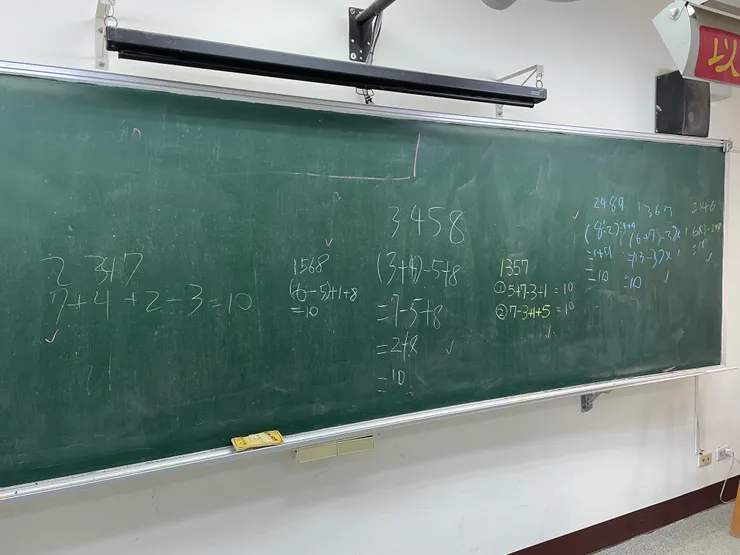 2 3 4 7
7+4+2-3=10
1568
(6-5)+1+8
=10
3458
(3+4)-5+8
=7-5+8
=2+8
=10
1357
① 5+7-3+1=10
② 7-3+1+5=10
2489
=1+9
=10
1367
(6+7)-3)×1
=(13-3)×1
=10
以